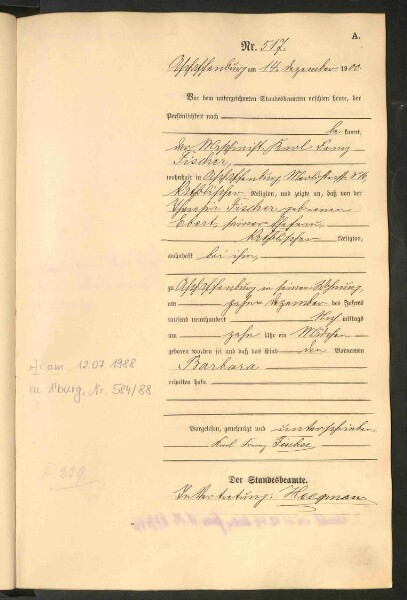 A.
Nr. 517.
Aschaffenburg am 14. Dezember 1900.
Vor dem unterzeichneten Standesbeamten erschien heute, der
Persönlichkeit nach
be kannt,
der Maschinist Karl Franz
Fischer,
wohnhaft in Aschaffenburg
katholischer Religion, und zeigte an, daß von der
Fischer, geborenen
Ebert, seiner Ehefrau,
katholischer Religion,
wohnhaft bei ihm,
zu Aschaffenburg in seiner Wohnung,
am zehnten Dezember des Jahres
tausend neunhundert Nach mittags
um zehn Uhr ein Mädchen
geboren worden sei und daß das Kind den Vornamen
Barbara
erhalten habe.
Vorgelesen, genehmigt und unterschrieben
Karl Franz Fischer
Der Standesbeamte.
In Vertretung: Hegmann
am 12.07.1988
in A'burg, Nr. 584/88